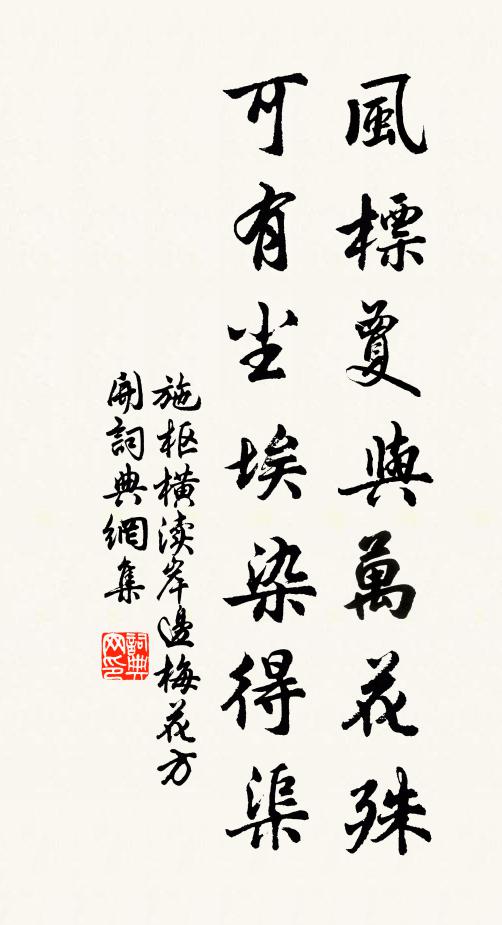 風標夐與萬花殊
可有尘埃染得渠
施枢橫渎岸邊梅花方
開詞典網集
詞典网印